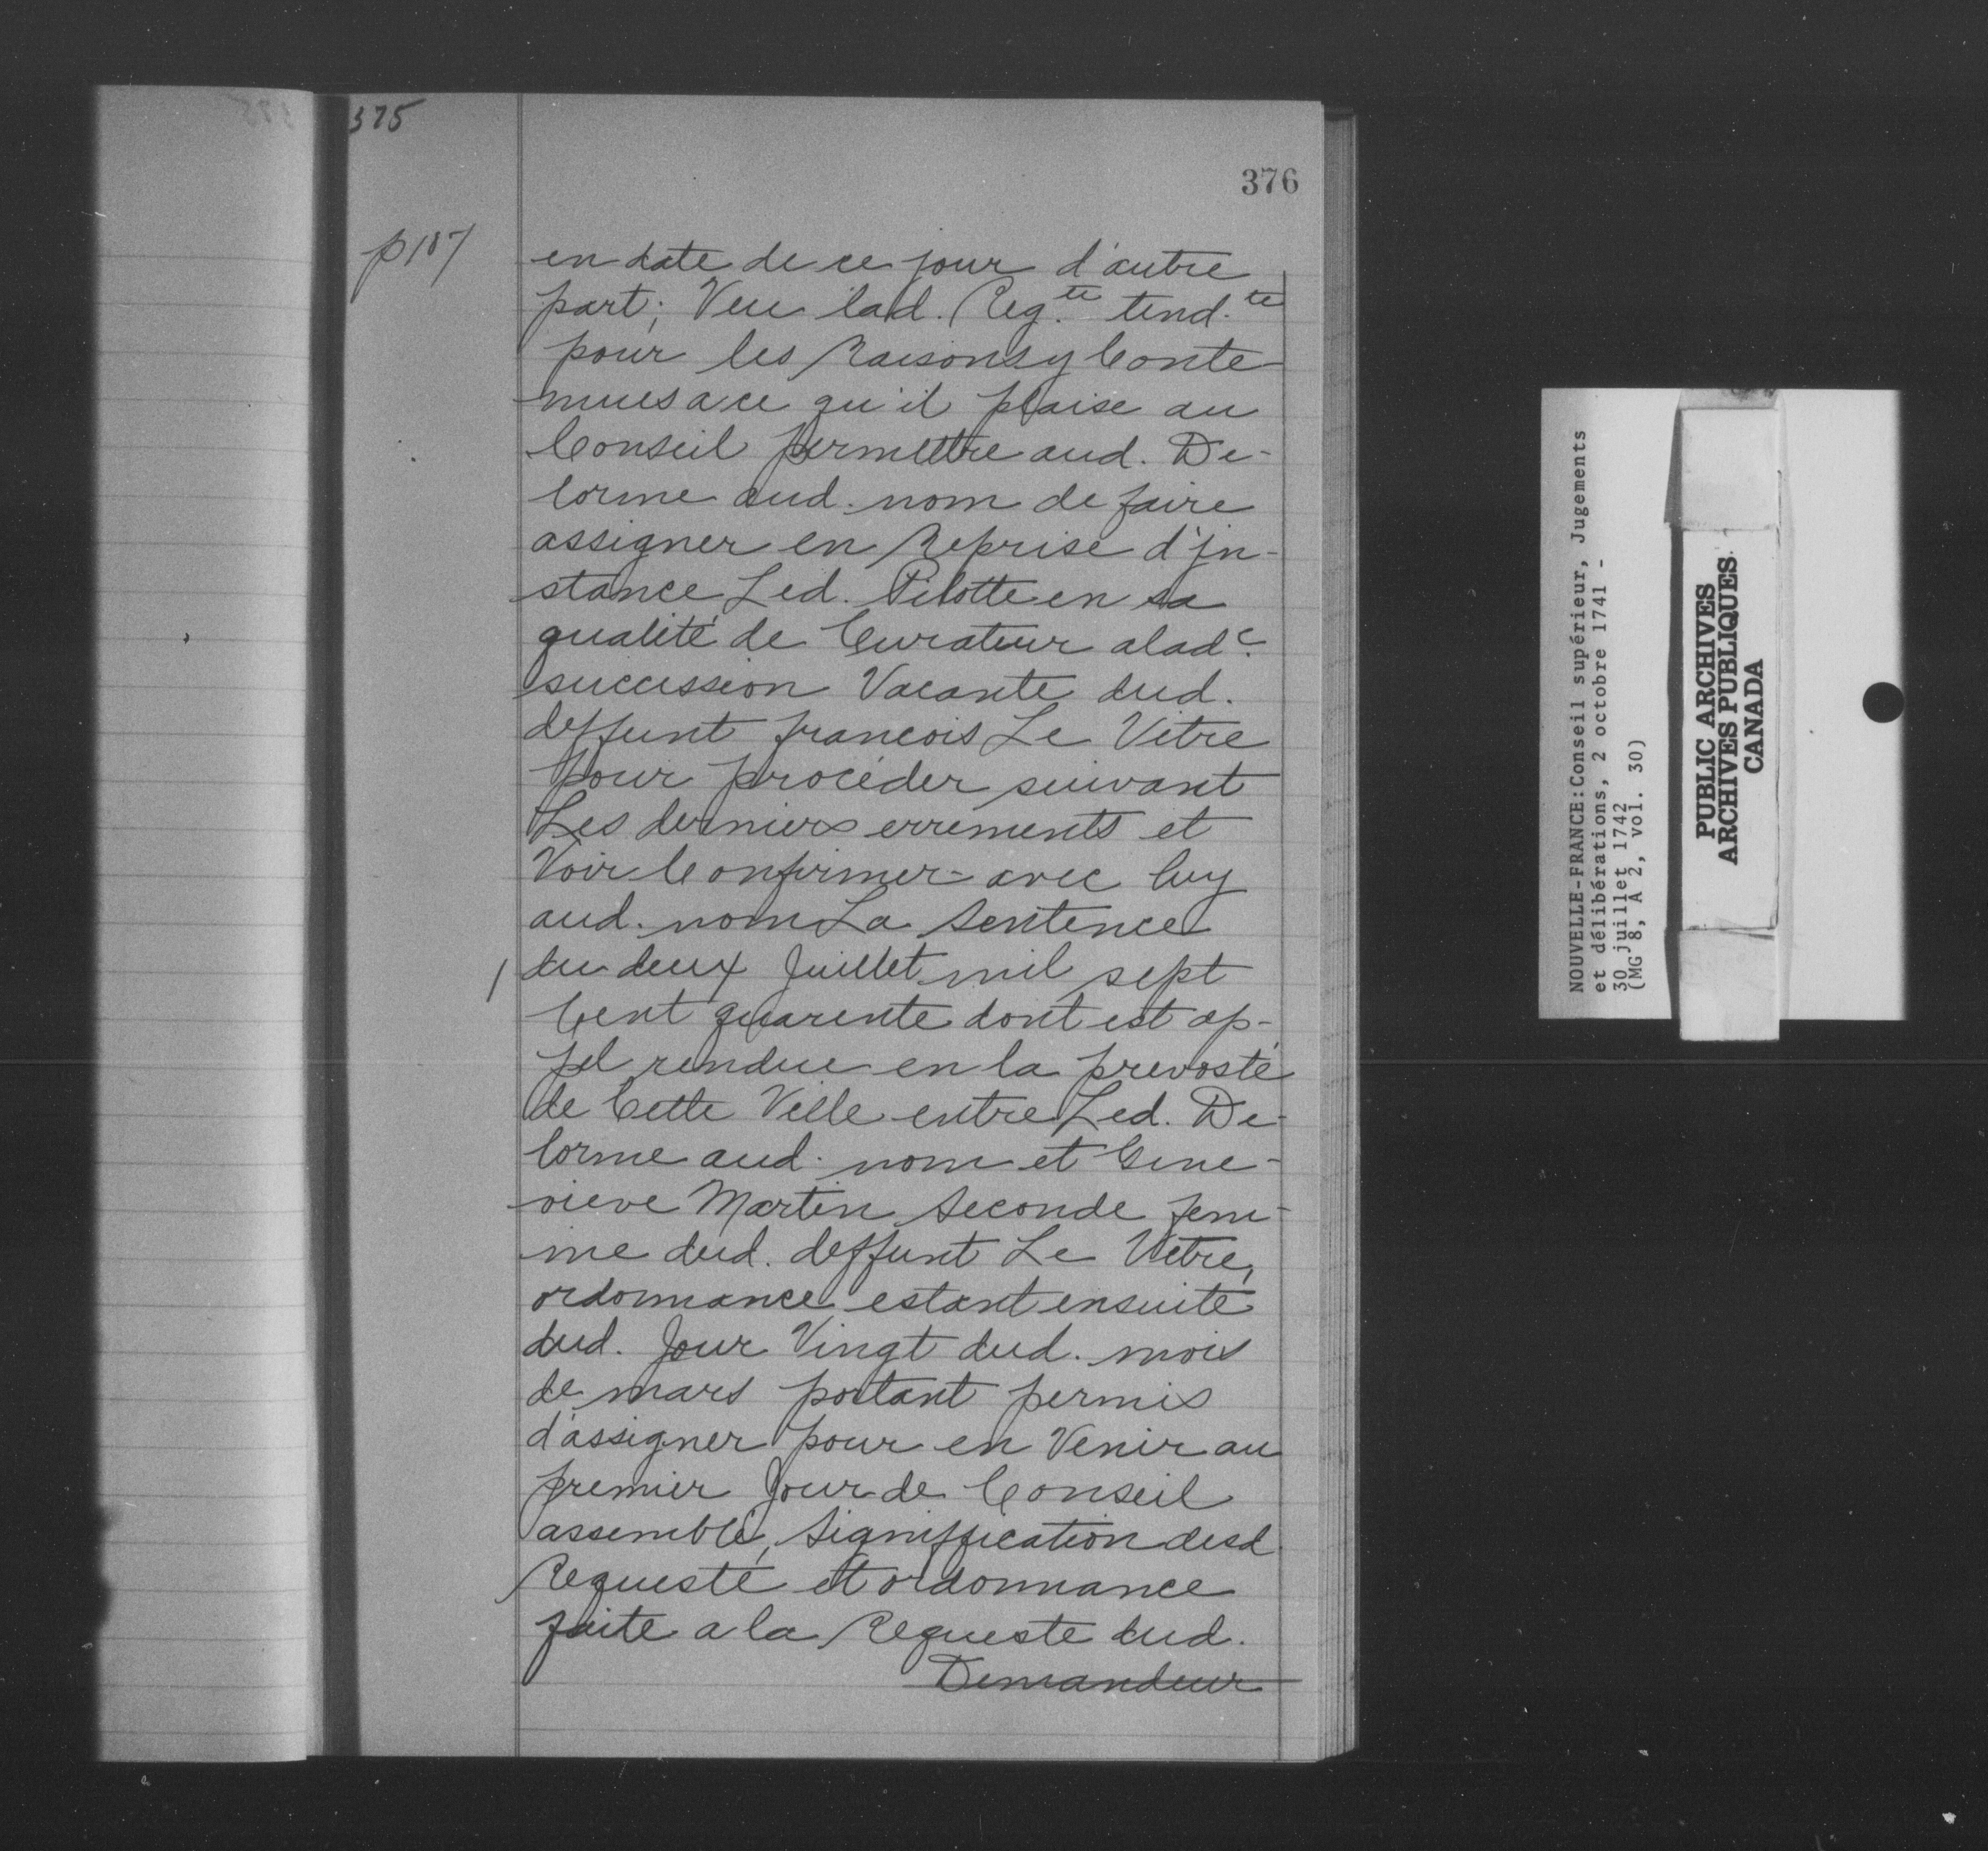 375
376
p107
en date de ce jour d'autre
part; Veu lad. Reg.te tend.te
pour les Raisons y Conte-
nues a ce qu'il plaise au
Conseil permettre aud. De-
lorme aud. nom de faire
assigner en Reprise d'jn-
stance Led. Pilotte en sa
qualité de Curateur a lad.e
succession Vacante dud.
deffunt francois Le Vitre
pour procéder suivant
Les derniers errements et
Voir Confirmer avec luy
aud. nom La Sentence
du deux Juillet mil sept
Cent quarente dont est ap-
pel rendue en la prevosté
de Cette Ville entre Led. De-
lorme aud. nom et Gene-
vieve Martin Seconde fem-
me dud. deffunt Le Vitre,
ordonnance estant ensuite
dud. Jour Vingt dud. mois
de mars portant permis
d'assigner pour en Venir au
premier Jour de Conseil
assemblé, Signiffication desd.
Requeste et ordonnance
faite a la Requeste dud.
Demandeur
NOUVELLE-FRANCE:Conseil supérieur, Jugements
et délibérations, 2 octobre 1741 -
30 juillet 1742
(MG 8, A 2, vol. 30)
PUBLIC ARCHIVES
ARCHIVES PUBLIQUES
CANADA